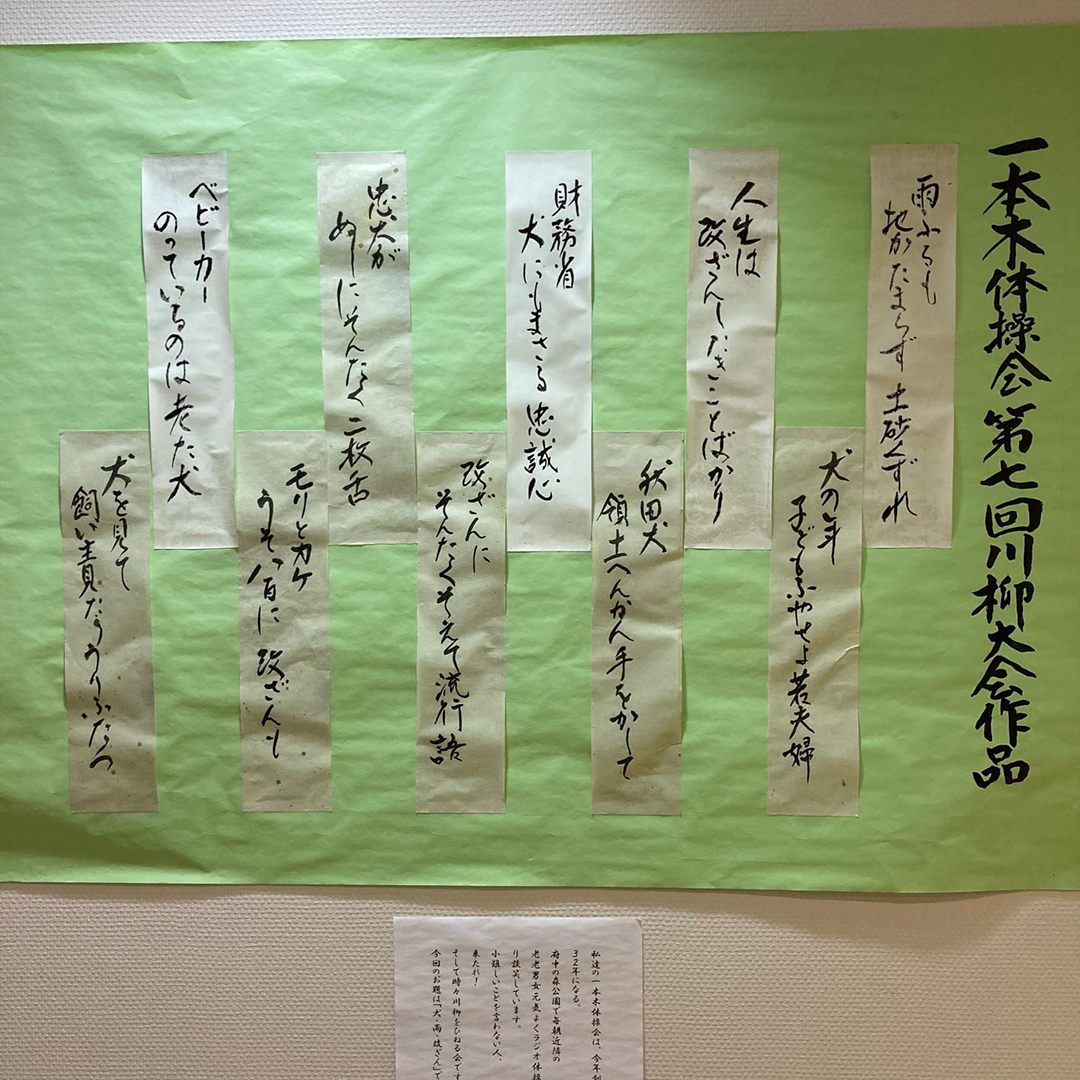 一本木体操会 第七回川柳大会作品
雨ふるも
地がたまらず 土砂くずれ
犬の年
子どもふやせよ 若夫婦
人生は
改ざんしたきことばかり
秋田犬
領土へんかん手をかして
財務省
犬にもまさる 忠誠心
改ざんに
そんたくそえて 流行語
忠犬が
ぬしにそんたく 二枚舌
モリとカケ
うそ八百に 改ざんも
ベビーカー
のっているのは 老た犬
犬を見て
飼い主見たら うりふたつ
私達の一本木体操会は、今年創
32年になる。
府中の森公園で毎朝近隣の
老老男女元気よくラジオ体操
り談笑しています。
小難しいことを言わない人、
来たれ！
そして時々川柳をひねる会です
今回のお題は「犬・雨・改ざん」で